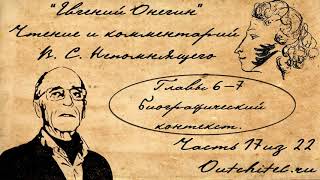 "Евгений Онегин"
Чтение и комментарий
В. С. Непомнящего
Главы 6-7
Биографический
контекст.
Часть 17 из 22
Outchitel.ru